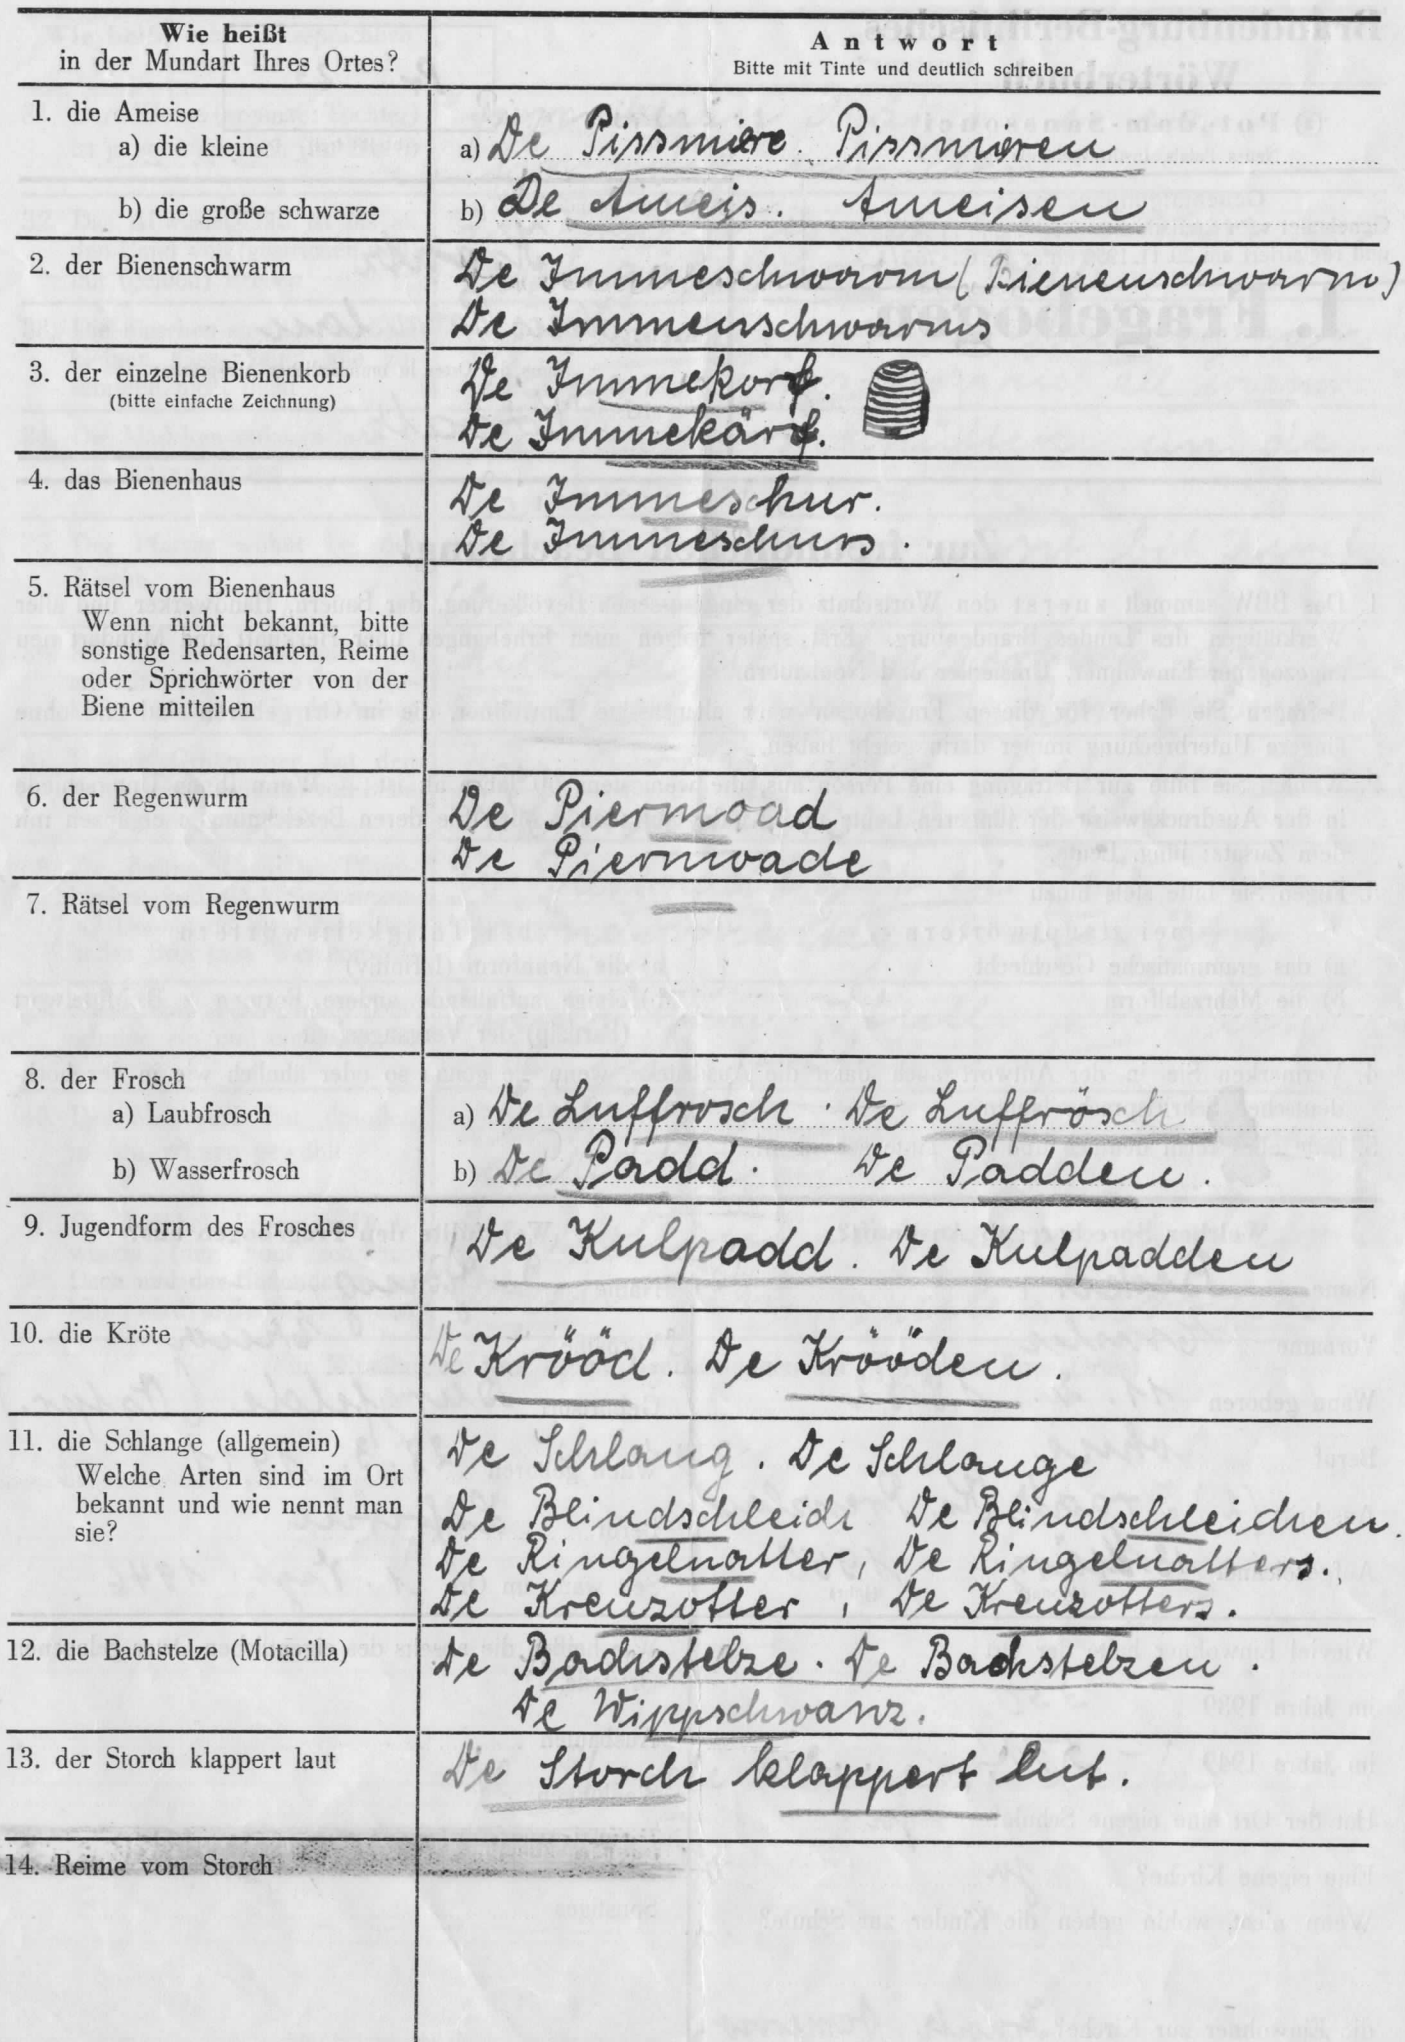 Wie heißt
in der Mundart Ihres Ortes?
Antwort
Bitte mit Tinte und deutlich schreiben
1. die Ameise
a) die kleine
a) De Pissmiere. Pissmieren
b) die große schwarze
b) De Ameis. Ameisen
2. der Bienenschwarm
De Immeschwarm (Bienenschwarm)
De Immenschwarms
3. der einzelne Bienenkorb
(bitte einfache Zeichnung)
De Immekorf.
De Immekärf.
4. das Bienenhaus
De Immeschur.
De Immeschurs.
5. Rätsel vom Bienenhaus
Wenn nicht bekannt, bitte
sonstige Redensarten, Reime
oder Sprichwörter von der
Biene mitteilen
6. der Regenwurm
De Piermoad
De Piermoade
7. Rätsel vom Regenwurm
8. der Frosch
a) Laubfrosch
a) De Luffrosch. De Luffrösch
b) Wasserfrosch
b) De Padd. De Padden.
9. Jugendform des Frosches
De Kulpadd. De Kulpadden
10. die Kröte
De Krööd. De Krööden.
11. die Schlange (allgemein)
Welche Arten sind im Ort
bekannt und wie nennt man
sie?
De Schlang. De Schlange
De Blindschleich De Blindschleichen.
De Ringelnatter, De Ringelnatters.
De Kreuzotter, De Kreuzotters.
12. die Bachstelze (Motacilla)
De Bachstelze. De Bachstelzen.
De Wippschwanz.
13. der Storch klappert laut
De Storch klappert lut.
14. Reime vom Storch